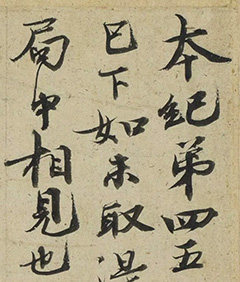 本紀第四五
已下如未取
局中相見也